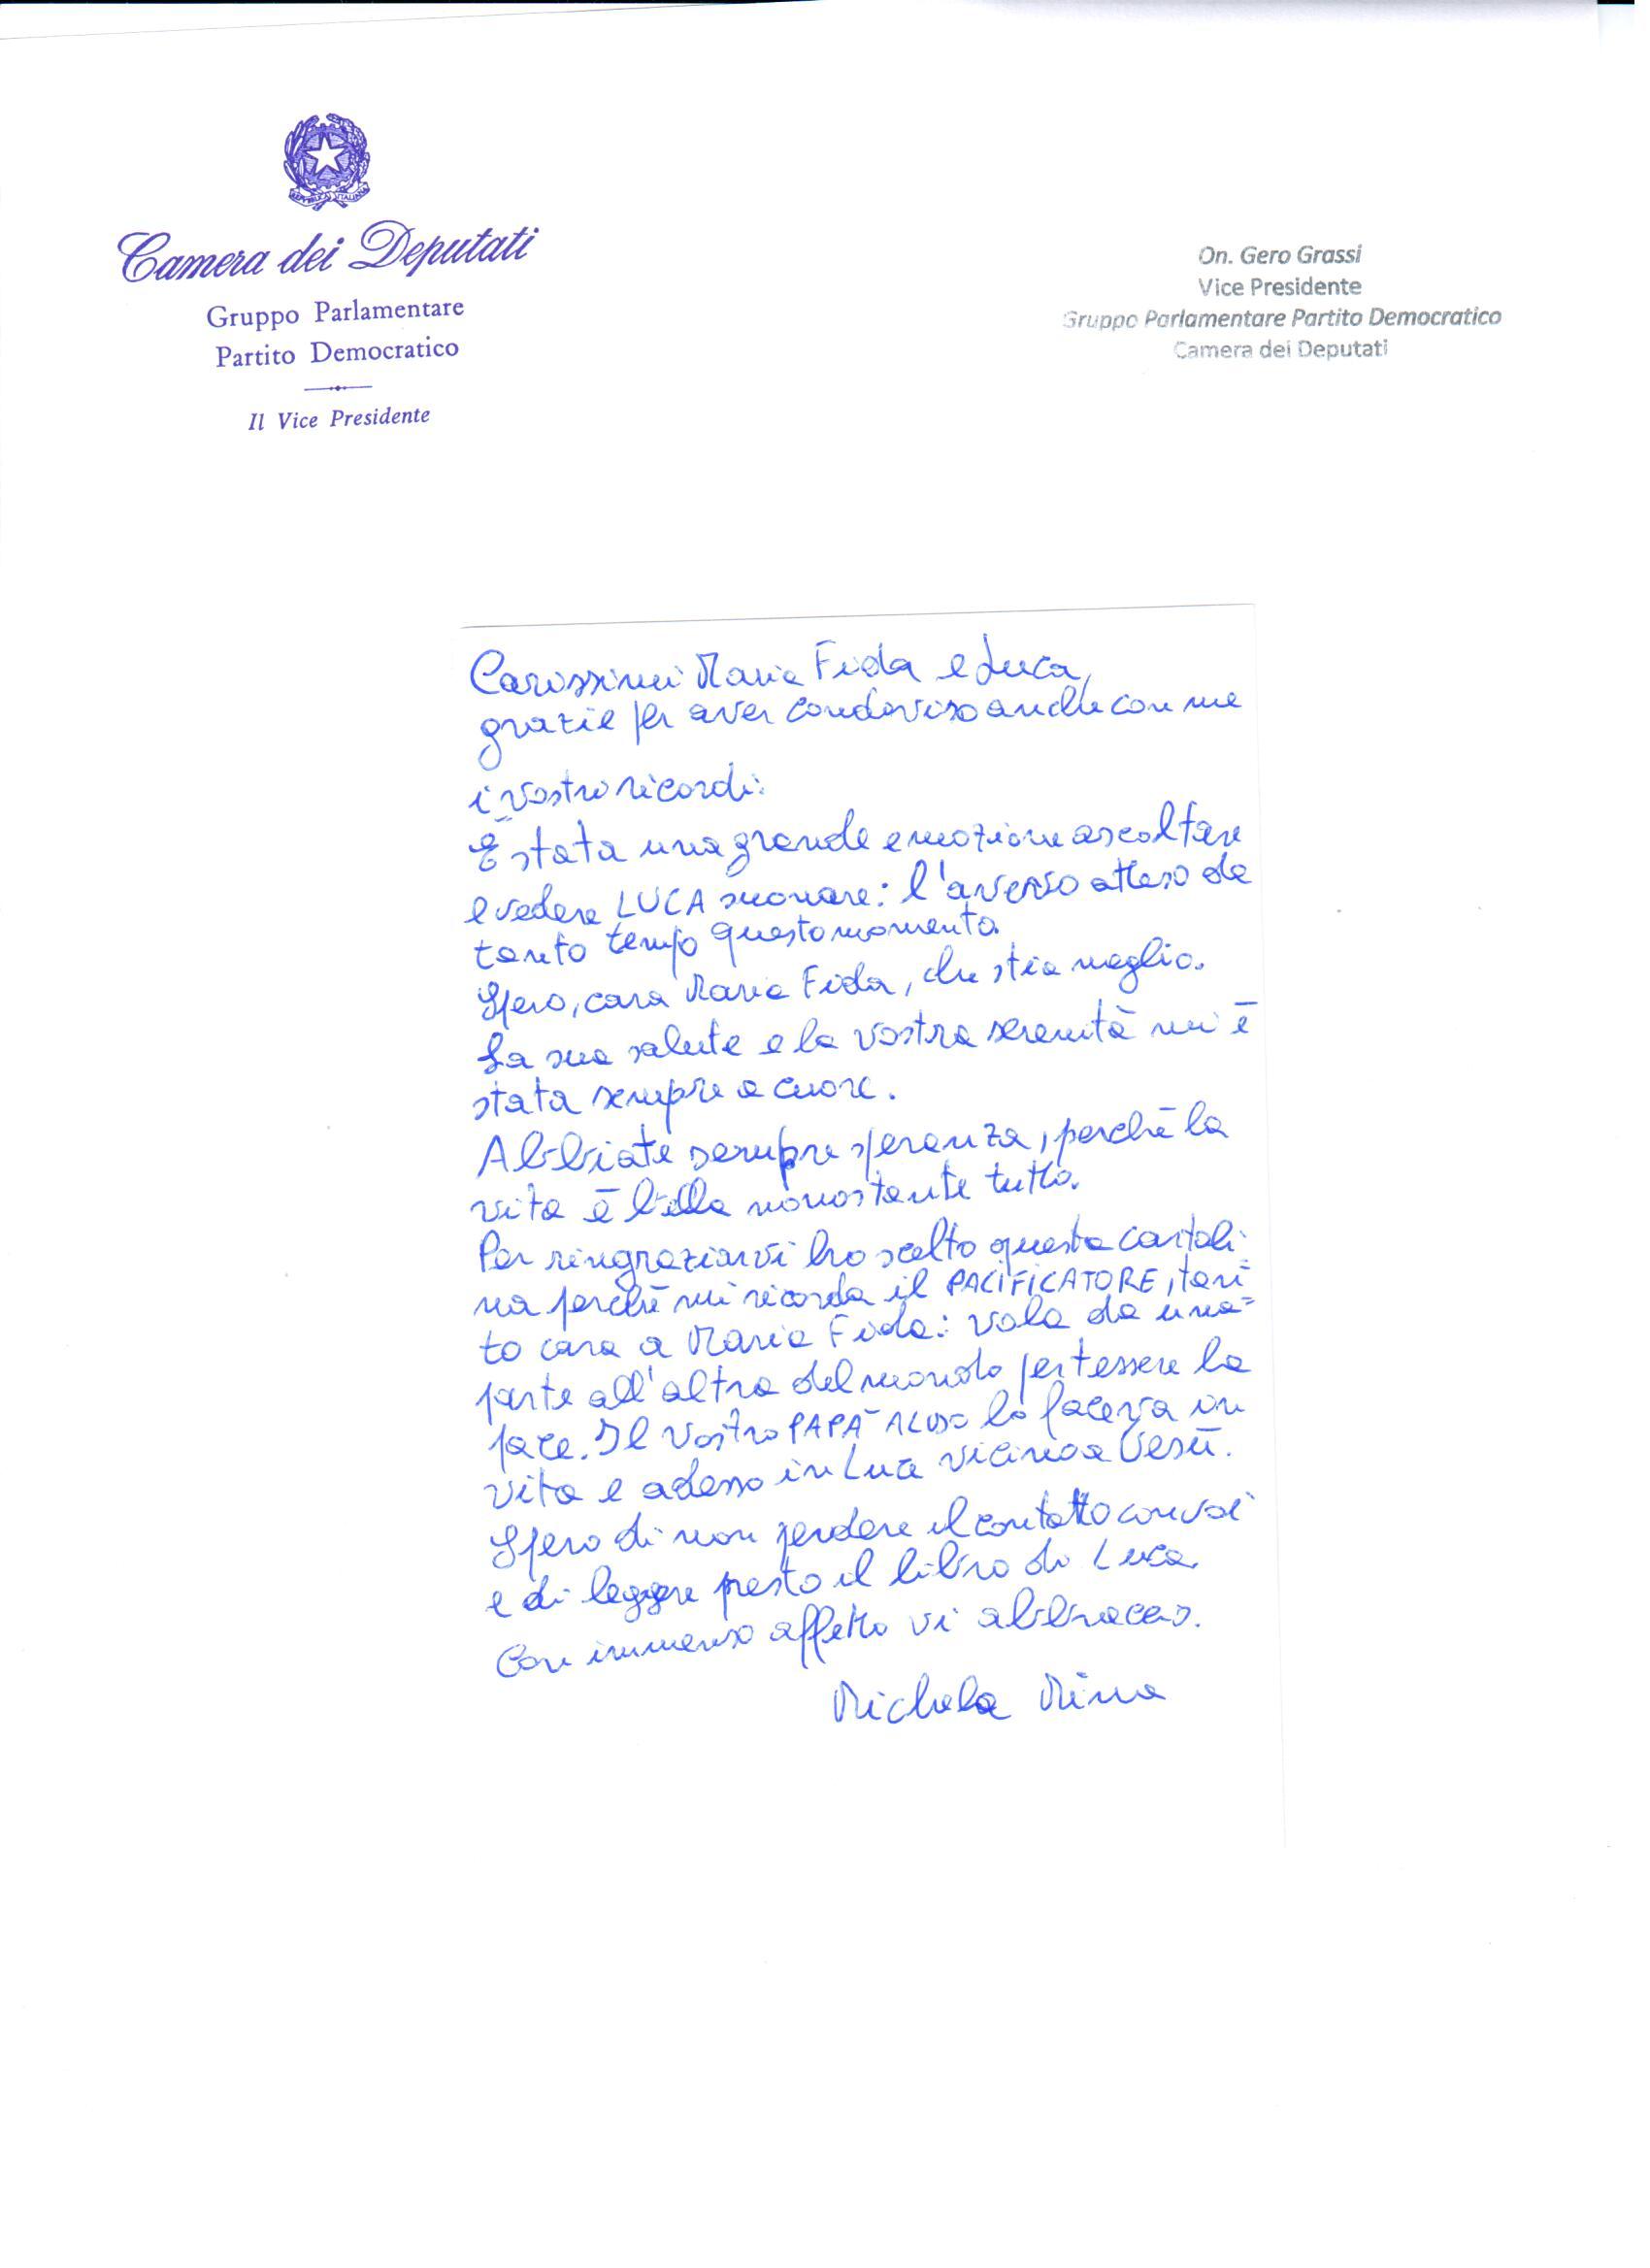 REPVBBLICA ITALIANA
Camera dei Deputati
Gruppo Parlamentare
Partito Democratico
Il Vice Presidente
On. Gero Grassi
Vice Presidente
Gruppo Parlamentare Partito Democratico
Camera dei Deputati
Carissimi Maria Fida e Luca,
grazie per aver condiviso anche con me
i vostri ricordi.
È stata una grande emozione ascoltare
e vedere LUCA suonare: l'avevo atteso da
tanto tempo questo momento.
Spero, cara Maria Fida, che stia meglio.
La sua salute e la vostra serenità mi è
stata sempre a cuore.
Abbiate sempre speranza, perchè la
vita è bella nonostante tutto.
Per ringraziarvi ho scelto questa cartoli-
na perchè mi ricorda il PACIFICATORE, tan-
to cara a Maria Fida: vola da una
parte all'altra del mondo per tessere la
pace. Il Vostro PAPÀ ALDO lo faceva in
vita e adesso in Luce vicino a Gesù.
Spero di non perdere il contatto con voi
e di leggere presto il libro di Luca
Con immenso affetto vi abbraccio.
Michela Mina